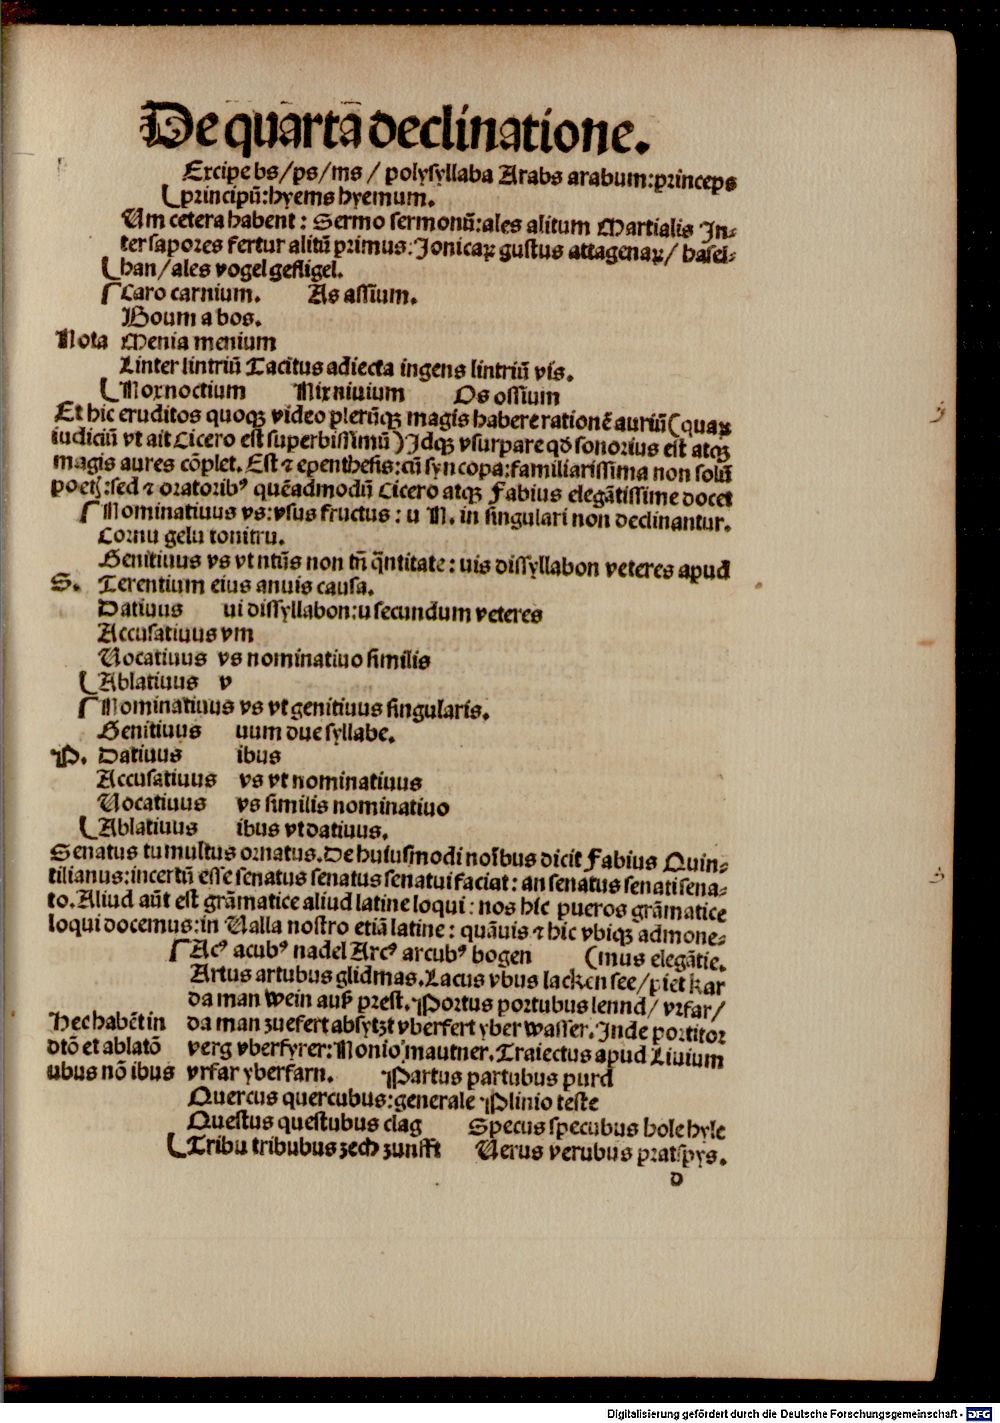 De quarta declinatione.
Excipe bs/ps/ms / polysyllaba Arabs arabum:princeps
principū:hyems hyemum.
Um cetera habent : Sermo sermonū:ales alitum Martialis In⸗
ter sapores fertur alitū primus:Jonicaꝝ gustus attagenaꝝ/ hasel⸗
han/ales vogel gefligel.
Caro carnium. As assium.
Boum a bos.
Nota Menia menium
Linter lintriū Tacitus adiecta ingens lintriū vis.
Nox noctium Nix niuium Os ossium
Et hic eruditos quoqꝫ video plerūqꝫ magis habere rationē auriū(quaꝝ
iudiciū vt ait Cicero est superbissimū)Idqꝫ vsurpare qd sonorius est atqꝫ
magis aures cōplet. Est ⁊ epenthesis:cū syncopa:familiarissima non solū
poetꝭ:sed ⁊ oratoribꝰ quēadmodū Cicero atqꝫ Fabius elegātissime docet
Nominatiuus vs:vsus fructus : u N. in singulari non declinantur.
Cornu gelu tonitru.
Genitiuus vs vt ntūs non tn̄ q̄ntitate : uis dissyllabon veteres apud
S. Terentium eius anuis causa.
Datiuus ui dissyllabon:u secundum veteres
Accusatiuus vm
Uocatiuus vs nominatiuo similis
Ablatiuus v
Nominatiuus vs vt genitiuus singularis.
Genitiuus uum due syllabe.
P. Datiuus ibus
Accusatiuus vs vt nominatiuus
Uocatiuus vs similis nominatiuo
Ablatiuus ibus vt datiuus.
Senatus tumultus ornatus.De huiusmodi noībus dicit Fabius Quin⸗
tilianus:incertū esse senatus senatus senatui faciat : an senatus senati sena⸗
to.Aliud aūt est grāmatice aliud latine loqui : nos hic pueros grāmatice
loqui docemus:in Ualla nostro etiā latine : quāuis ⁊ hic vbiqꝫ admone⸗
Acꝰ acubꝰ nadel Arcꝰ arcubꝰ bogen (mus elegātie.
Artus artubus glidmas.Lacus vbus lacken see/piet kar
da man wein auß prest.Portus portubus lennd/ vrfar/
Hec habēt in da man zuefert absytzt vberfert yber wasser.Inde portitor
dtō et ablatō verg vberfyrer:Nonioꝰmautner.Traiectus apud Liuium
ubus nō ibus vrfar yberfarn. Partus partubus purd
Quercus quercubus:generale Plinio teste
Questus questubus clag Specus specubus hole hyle
Tribu tribubus zech zunfft Uerus verubus pratspys.
D
Digitalisierung gefördert durch die Deutsche Forschungsgemeinschaft - DFG